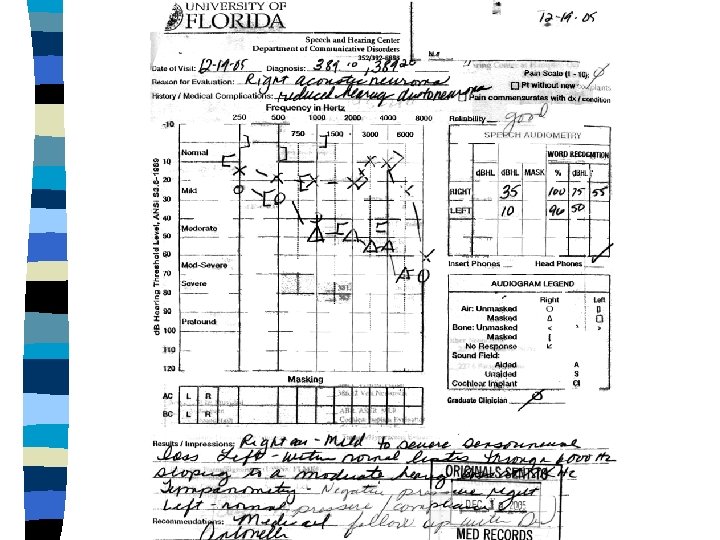 UNIVERSITY OF
FLORIDA
12-19-05
Speech and Hearing Center
Department of Communicative Disorders
Date of Visit: 12-19-05 Diagnosis: 389.10, 389.20
Pain Scale (1 - 10):
Reason for Evaluation: Right acoustic neuroma
Pt without new complaints
History / Medical Complications: reduced hearing
Pain commensurates with dx / condition
Frequency in Hertz
Reliability good
250 500 1000 2000 4000 8000
750 1500 3000 6000
SPEECH AUDIOMETRY
WORD RECOGNITION
dBHL dBHL MASK % dBHL
RIGHT 35 100 75 55
LEFT 10 96 50
Insert Phones Head Phones
dB Hearing Threshold Level, ANSI S3.6-1989
-10
Normal
10
20
Mild
30
40
Moderate
50
60
Mod-Severe
70
Severe
80
90
Profound
100
110
120
AUDIOGRAM LEGEND
Right Left
Air: Unmasked
Masked
Bone: Unmasked
Masked
No Response
Sound Field:
Aided A
Unaided S
Cochlear Implant CI
Graduate Clinician
Masking
AC L R
BC L R
Results / Impressions: Right ear - Mild to severe sensorineural
loss Left - within normal limits through 6000 Hz
sloping to a moderate hearing
ORIGINALS SENT TO
Tympanometry - Negative pressure right
Left - normal pressure / compliance
Recommendations: Medical follow up with Dr
Antonelli
MED RECORDS